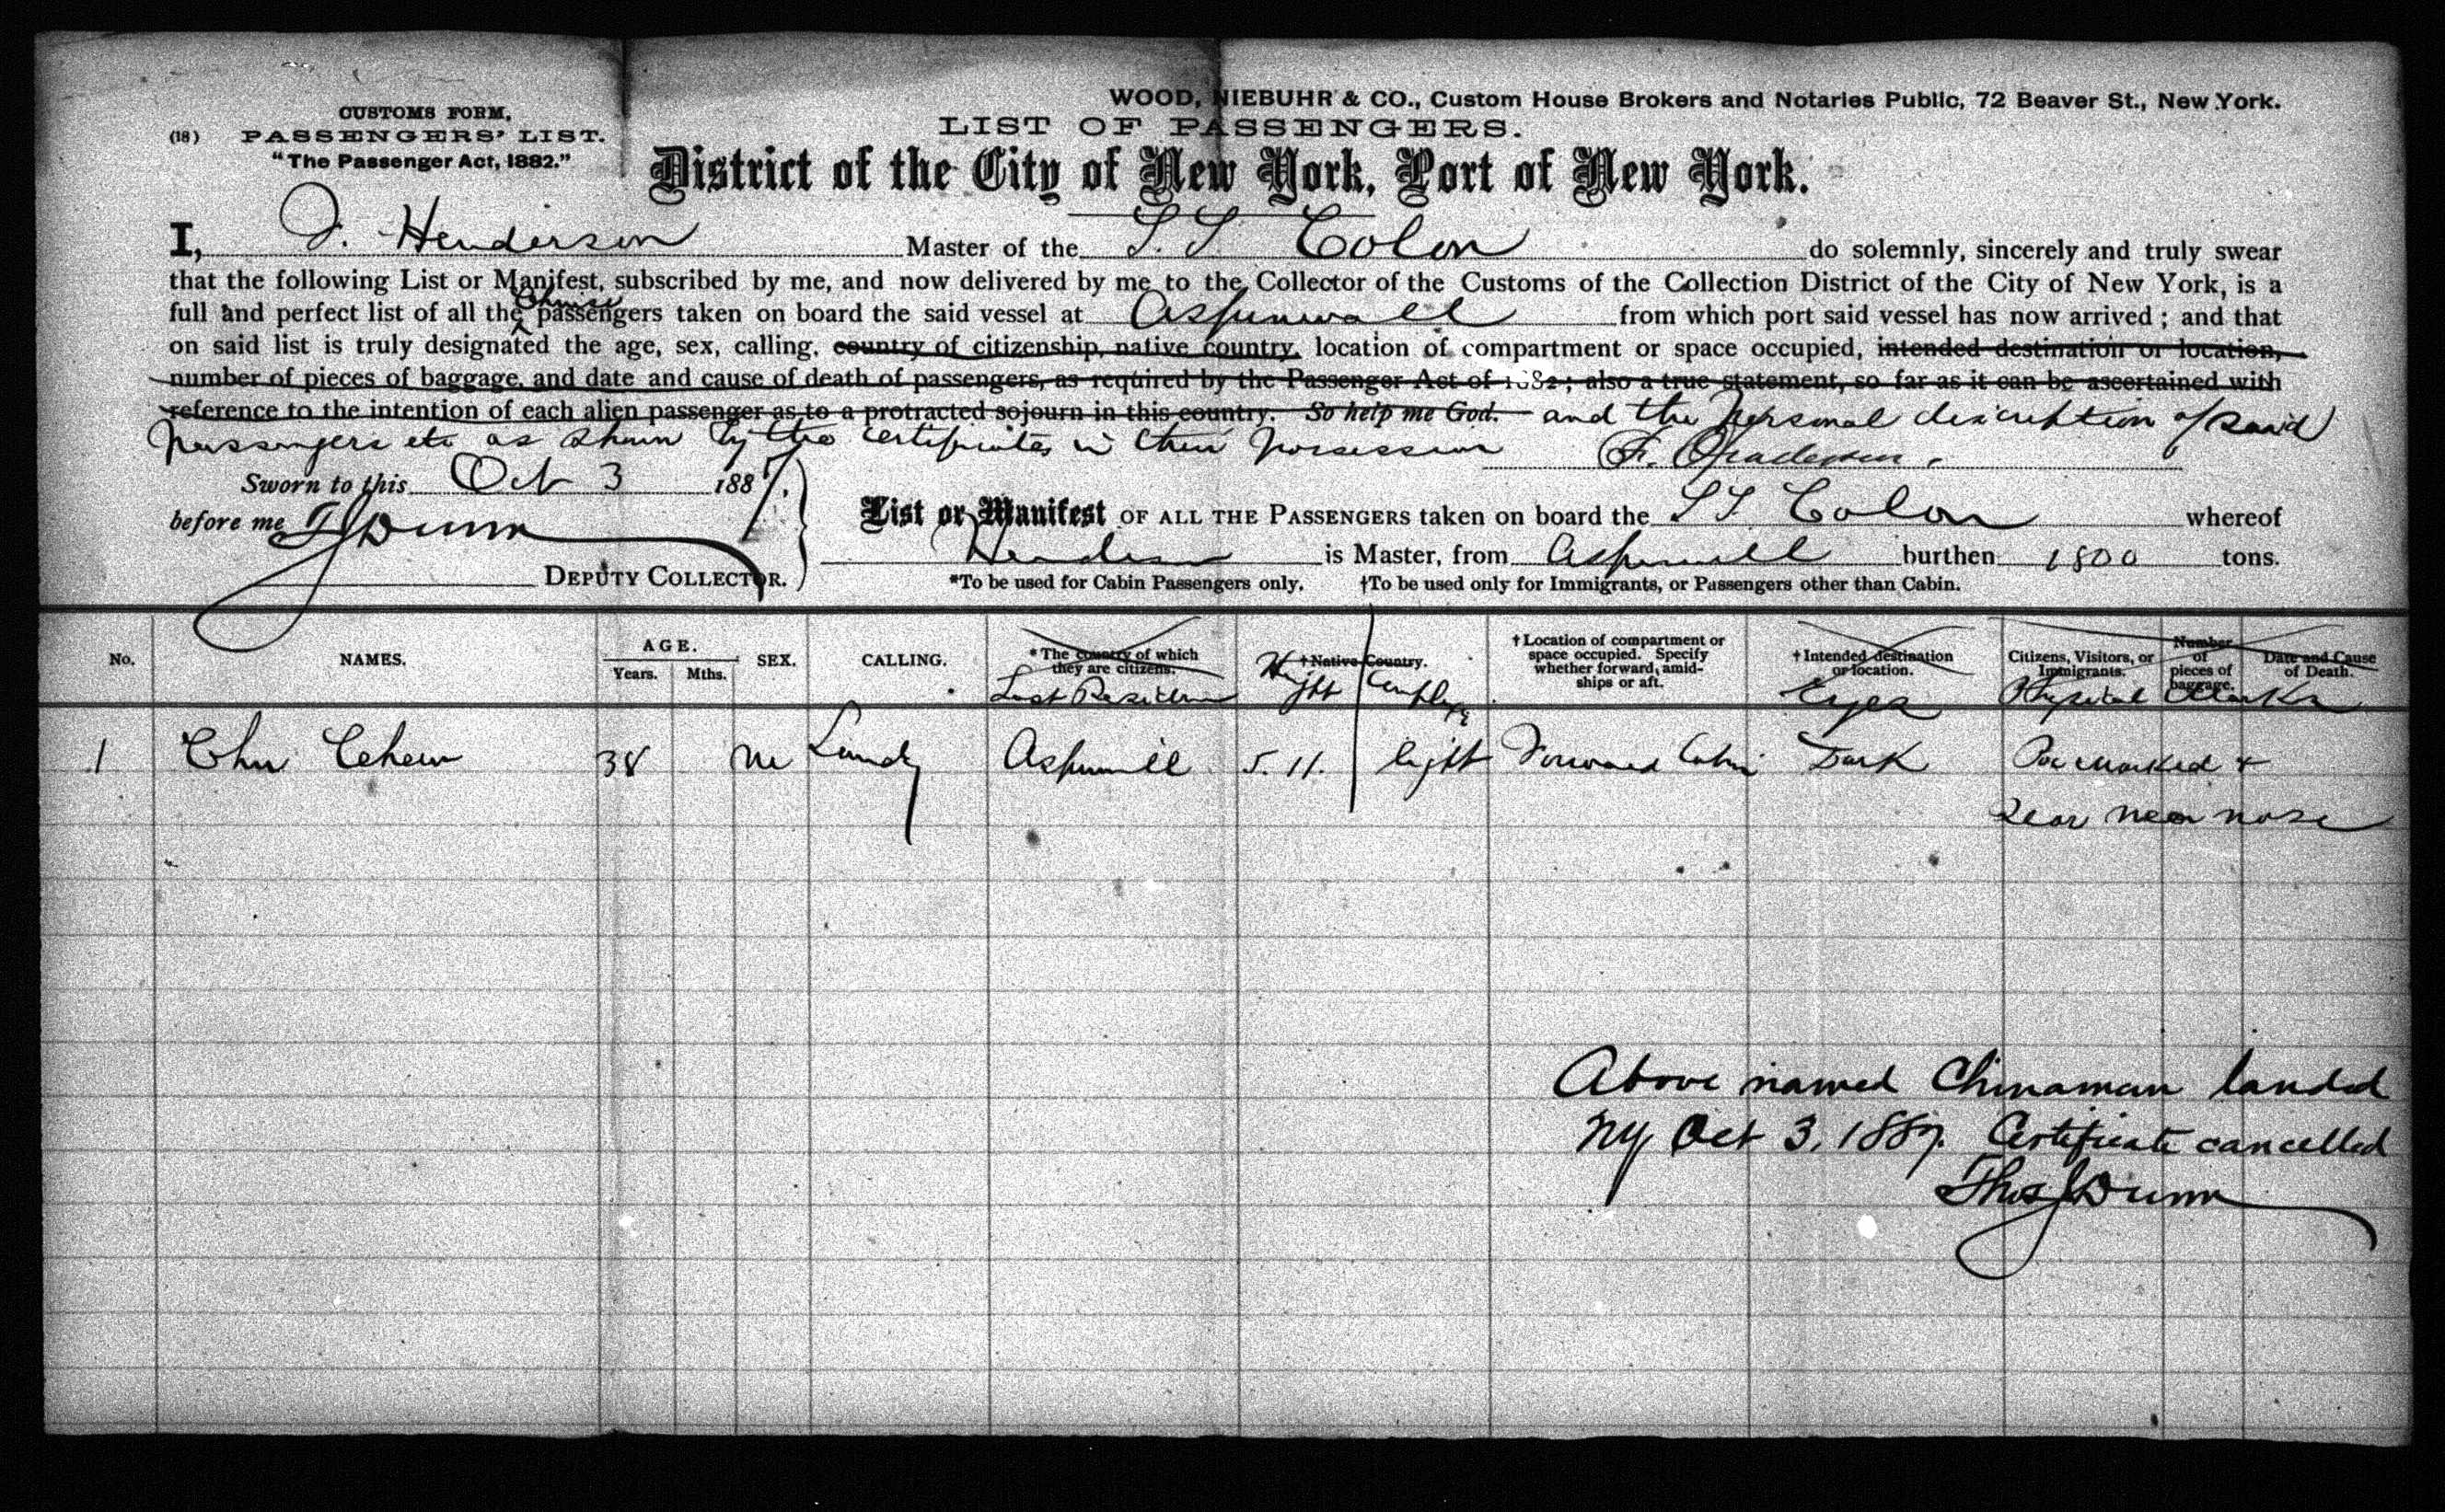 WOOD, NIEBUHR & CO., Custom House Brokers and Notaries Public, 72 Beaver St., New York.
CUSTOMS FORM,
(18) PASSENGERS' LIST.
"The Passenger Act, 1882."
LIST OF PASSENGERS.
District of the City of New York, Port of New York.
I, Henderson Master of the S. S Colon do solemnly, sincerely and truly swear
that the following List or Manifest, subscribed by me, and now delivered by me to the Collector of the Customs of the Collection District of the City of New York, is a
full and perfect list of all the Chinese passengers taken on board the said vessel at Aspinwall from which port said vessel has now arrived; and that
on said list is truly designated the age, sex, calling, country of citizenship, native country, location of compartment or space occupied, intended destination or location,
number of pieces of baggage, and date and cause of death of passengers, as required by the Passenger Act of 1882; also a true statement, so far as it can be ascertained with
reference to the intention of each alien passenger as to a protracted sojourn in this country. So help me God. and the personal discription of said
passengers etc as shown by the certificates in their possession
Sworn to this Oct 3 1887.
before me T J Dunn
DEPUTY COLLECTOR.
List or Manifest OF ALL THE PASSENGERS taken on board the S S Colon whereof
Henderson is Master, from Aspinwall burthen 1800 tons.
*To be used for Cabin Passengers only. †To be used only for Immigrants, or Passengers other than Cabin.
No.
NAMES.
AGE.
Years. Mths.
SEX.
CALLING.
* The country of which
they are citizens.
Last Residence
† Native Country.
Height
Complex
† Location of compartment or
space occupied. Specify
whether forward, amid-
ships or aft.
† Intended destination
or location.
Eyes
Citizens, Visitors, or
Immigrants.
Number
of
pieces of
baggage.
Date and Cause
of Death.
Physical Marks
1 Chu 38 M Laundy Aspinwall 5. 11. light Forward Cabin Dark Pox marked +
Scar near nose
Above named Chinaman landed
NY Oct 3, 1887. Certificate cancelled
Thos J Dunn